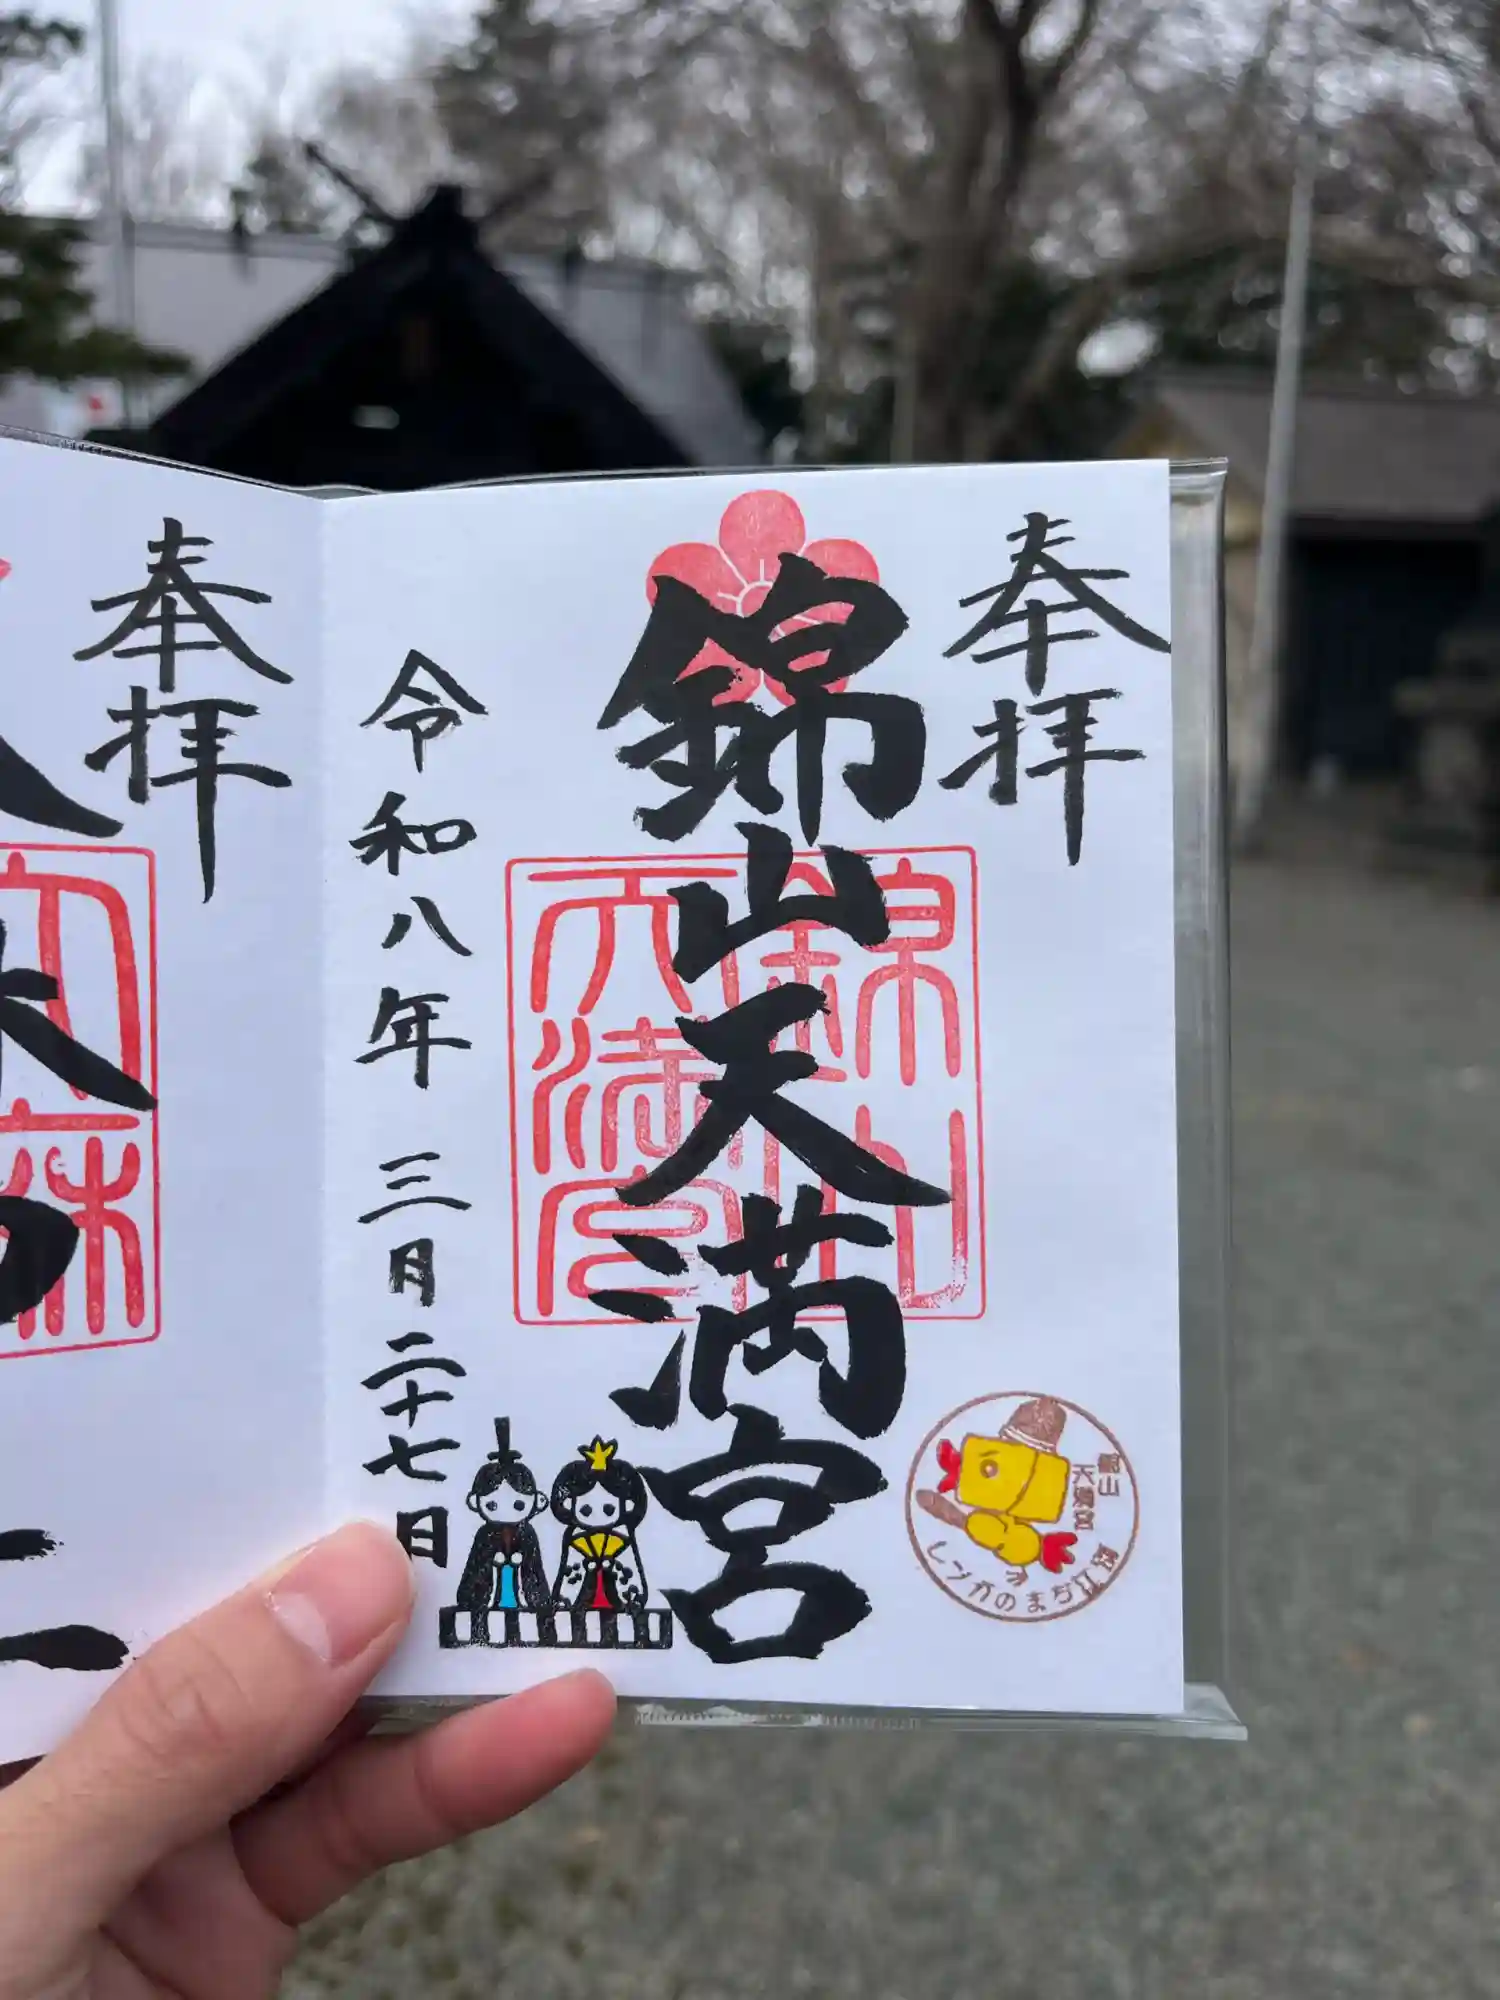 奉拝
錦山天満宮
令和八年三月二十七日
錦山
天満宮
錦山
天満宮
レンガのまち江別
奉拝